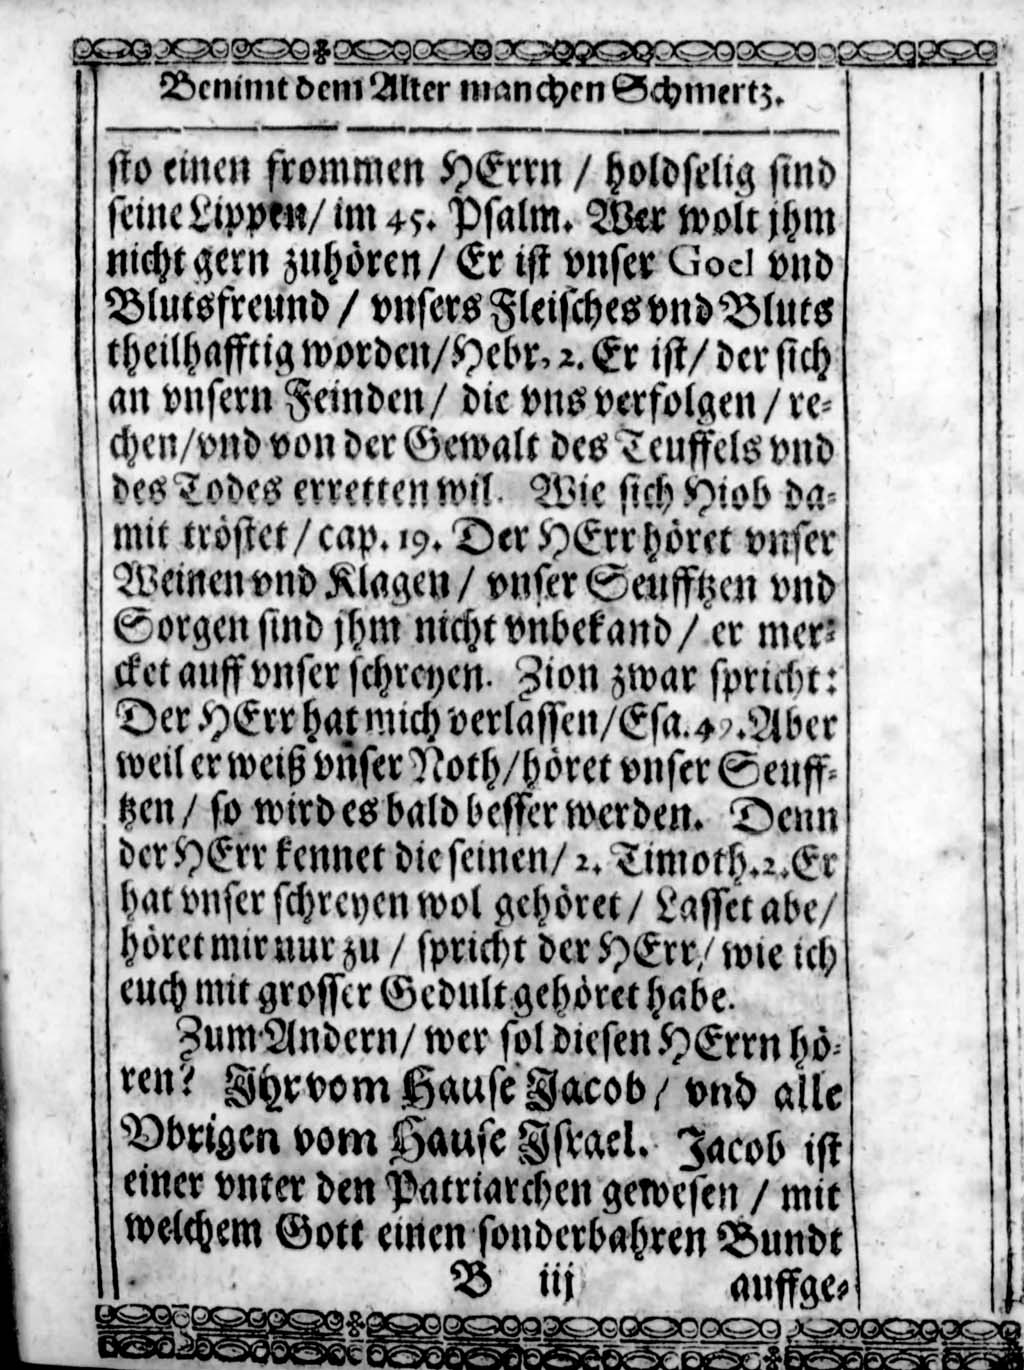 Benimt dem Alter manchen Schmertz.
sto einen frommen HErrn / holdselig sind
seine Lippen / im 45. Psalm. Wer wolt jhm
nicht gern zuhören / Er ist vnser Goel vnd
Blutsfreund / vnsers Fleisches vnd Bluts
theilhafftig worden / Hebr. 2. Er ist / der sich
an vnsern Feinden / die vns verfolgen / re-
chen / vnd von der Gewalt des Teuffels vnd
des Todes erretten wil. Wie sich Hiob da-
mit tröstet / cap. 19. Der HErr höret vnser
Weinen vnd Klagen / vnser Seufftzen vnd
Sorgen sind jhm nicht vnbekand / er mer-
cket auff vnser schreyen. Zion zwar spricht:
Der HErr hat mich verlassen / Esa. 49. Aber
weil er weiß vnser Noth / höret vnser Seuff-
tzen / so wird es bald besser werden. Denn
der HErr kennet die seinen / 2. Timoth. 2. Er
hat vnser schreyen wol gehöret / Lasset abe /
höret mir nur zu / spricht der HErr / wie ich
euch mit grosser Gedult gehöret habe.
Zum Andern / wer sol diesen HErrn hö-
ren? Jhr vom Hause Jacob / vnd alle
Vbrigen vom Hause Jsrael. Jacob ist
einer vnter den Patriarchen gewesen / mit
welchem Gott einen sonderbahren Bundt
B iij auffge-